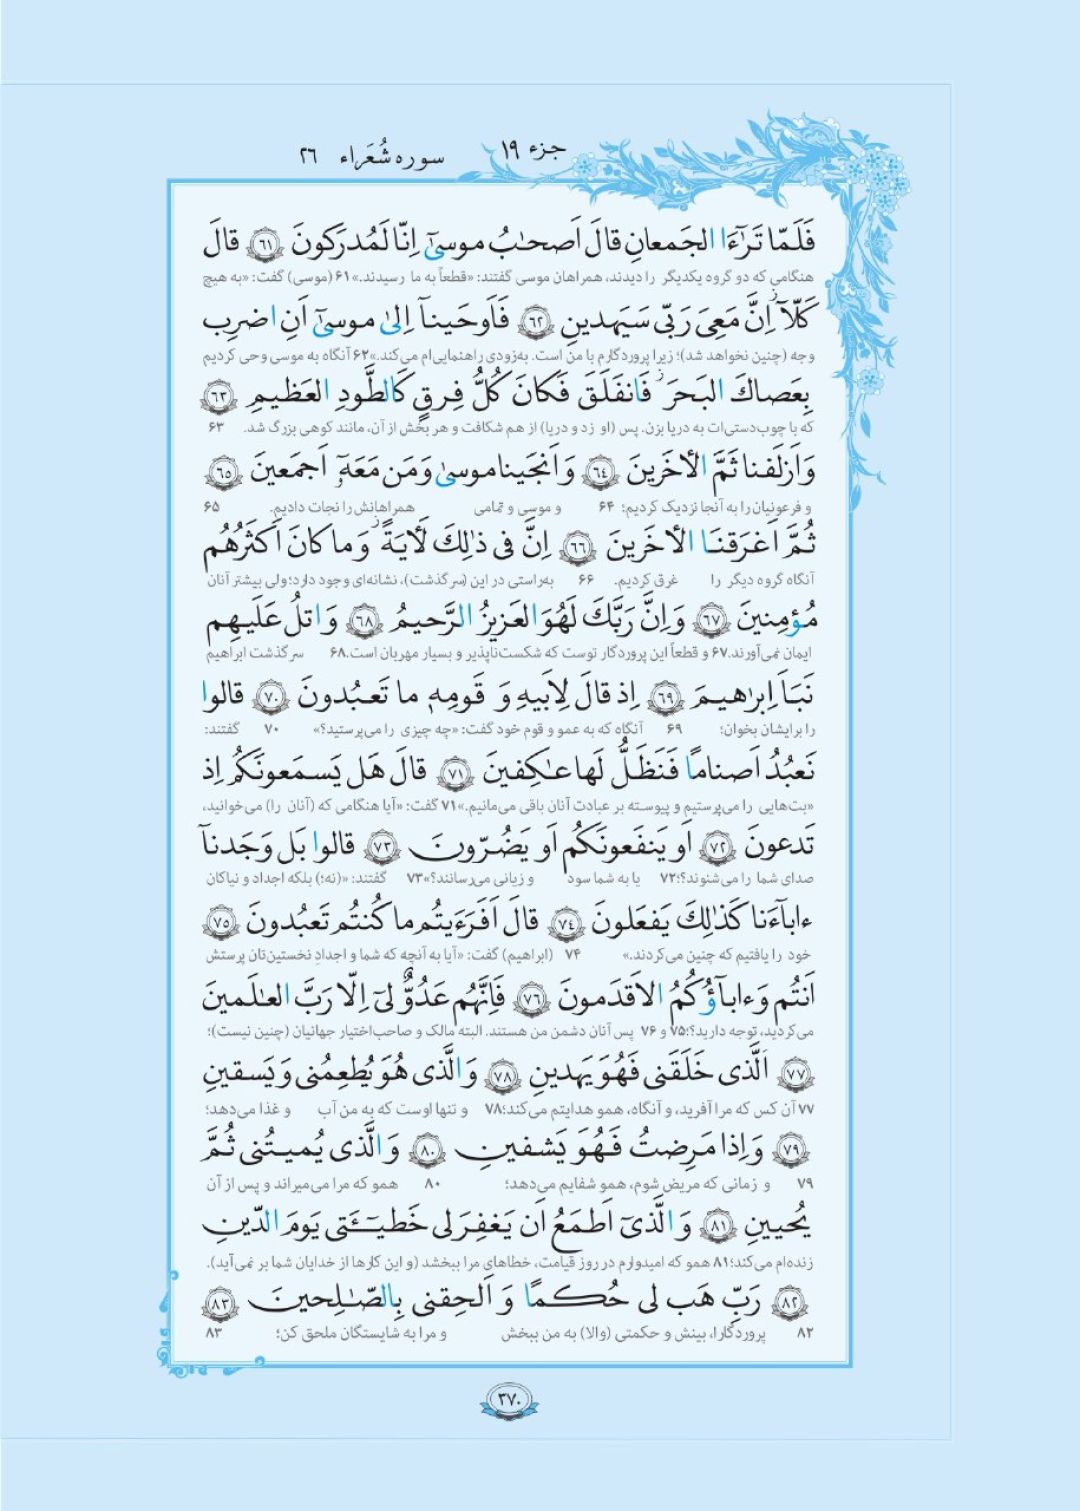 جزء ۱۹
سوره شُعَراء ۲۶
فَلَمّا تَرٰٓءَا الجَمعانِ قالَ اَصحٰبُ موسىٰٓ اِنّا لَمُدرَكونَ ﴿٦١﴾ قالَ
هنگامی که دو گروه یکدیگر را دیدند، همراهان موسی گفتند: «قطعاً به ما رسیدند.» ۶۱ (موسی) گفت: «به هیچ
كَلّآ ۖ اِنَّ مَعِىَ رَبّى سَيَهدينِ ﴿٦٢﴾ فَاَوحَينآ اِلىٰ موسىٰٓ اَنِ اضرِب
وجه (چنین نخواهد شد)؛ زیرا پروردگارم با من است. به‌زودی راهنمایی‌ام می‌کند.» ۶۲ آنگاه به موسی وحی کردیم
بِعَصاكَ البَحرَ ۖ فَانفَلَقَ فَكانَ كُلُّ فِرقٍ كَالطَّودِ العَظيمِ ﴿٦٣﴾
که با چوب‌دستی‌ات به دریا بزن. پس (او زد و دریا) از هم شکافت و هر بخش از آن، مانند کوهی بزرگ شد. ۶۳
وَ اَزلَفنا ثَمَّ الأخَرينَ ﴿٦٤﴾ وَ اَنجَينا موسىٰ وَ مَن مَعَهٓ اَجمَعينَ ﴿٦٥﴾
و فرعونیان را به آنجا نزدیک کردیم؛ ۶۴ و موسی و تمامی همراهانش را نجات دادیم. ۶۵
ثُمَّ اَغرَقنَا الأخَرينَ ﴿٦٦﴾ اِنَّ فى ذٰلِكَ لَأيَةً ۖ وَ ما كانَ اَكثَرُهُم
آنگاه گروه دیگر را غرق کردیم. ۶۶ به‌راستی در این (سرگذشت)، نشانه‌ای وجود دارد؛ ولی بیشتر آنان
مُؤمِنينَ ﴿٦٧﴾ وَ اِنَّ رَبَّكَ لَهُوَ العَزيزُ الرَّحيمُ ﴿٦٨﴾ وَ اتلُ عَلَيهِم
ایمان نمی‌آورند. ۶۷ و قطعاً این پروردگار توست که شکست‌ناپذیر و بسیار مهربان است. ۶۸ سرگذشت ابراهیم
نَبَاَ اِبرٰهيمَ ﴿٦٩﴾ اِذ قالَ لِاَبيهِ وَ قَومِه ما تَعبُدونَ ﴿٧٠﴾ قالوا
را برایشان بخوان؛ ۶۹ آنگاه که به عمو و قوم خود گفت: «چه چیزی را می‌پرستید؟» ۷۰ گفتند:
نَعبُدُ اَصناماً فَنَظَلُّ لَها عٰكِفينَ ﴿٧١﴾ قالَ هَل يَسمَعونَكُم اِذ
«بت‌هایی را می‌پرستیم و پیوسته بر عبادت آنان باقی می‌مانیم.» ۷۱ گفت: «آیا هنگامی که (آنان را) می‌خوانید،
تَدعونَ ﴿٧٢﴾ اَو يَنفَعونَكُم اَو يَضُرّونَ ﴿٧٣﴾ قالوا بَل وَجَدنآ
صدای شما را می‌شنوند؟؛ ۷۲ یا به شما سود و زیانی می‌رسانند؟» ۷۳ گفتند: «(نه؛) بلکه اجداد و نیاکان
ءابآءَنا كَذٰلِكَ يَفعَلونَ ﴿٧٤﴾ قالَ اَفَرَءَيتُم ما كُنتُم تَعبُدونَ ﴿٧٥﴾
خود را یافتیم که چنین می‌کردند.» ۷۴ (ابراهیم) گفت: «آیا به آنچه که شما و اجداد نخستین‌تان پرستش
اَنتُم وَ ءابآؤُكُمُ الاَقدَمونَ ﴿٧٦﴾ فَاِنَّهُم عَدُوٌّ لىٓ اِلّا رَبَّ العٰلَمينَ
می‌کردید، توجه دارید؟؛ ۷۵ و ۷۶ پس آنان دشمن من هستند. البته مالک و صاحب‌اختیار جهانیان (چنین نیست)؛
﴿٧٧﴾ اَلَّذى خَلَقَنى فَهُوَ يَهدينِ ﴿٧٨﴾ وَ الَّذى هُوَ يُطعِمُنى وَ يَسقينِ
۷۷ آن کس که مرا آفرید، و آنگاه، همو هدایتم می‌کند؛ ۷۸ و تنها اوست که به من آب و غذا می‌دهد؛
﴿٧٩﴾ وَ اِذا مَرِضتُ فَهُوَ يَشفينِ ﴿٨٠﴾ وَ الَّذى يُميتُنى ثُمَّ
۷۹ و زمانی که مریض شوم، همو شفایم می‌دهد؛ ۸۰ همو که مرا می‌میراند و پس از آن
يُحيينِ ﴿٨١﴾ وَ الَّذىٓ اَطمَعُ اَن يَغفِرَ لى خَطيـٓـَٔتى يَومَ الدّينِ
زنده‌ام می‌کند؛ ۸۱ همو که امیدوارم در روز قیامت، خطاهای مرا ببخشد (و این کارها از خدایان شما بر نمی‌آید).
﴿٨٢﴾ رَبِّ هَب لى حُكمًا وَ اَلحِقنى بِالصّٰلِحينَ ﴿٨٣﴾
۸۲ پروردگارا، بینش و حکمتی (والا) به من ببخش و مرا به شایستگان ملحق کن؛ ۸۳
۳۷۰